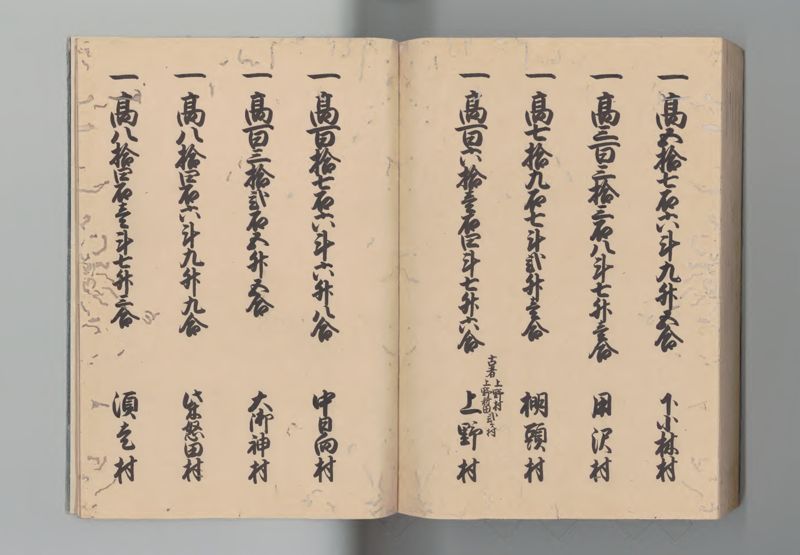 一 高五拾七石六斗九升五合 下小林村
一 高三百三拾三石八斗七升壱合 用沢村
一 高七拾九石七斗弐升壱合 棚頭村
一 高百六拾壱石四斗七升六合 上野村
古者上野村
上野新田弐ヶ村
一 高百拾七石六斗六升八合 中日向村
一 高百三拾弐石五升五合 大御神村
一 高八拾四石六斗九升九合 田村
一 高八拾四石壱斗七升三合 須走村